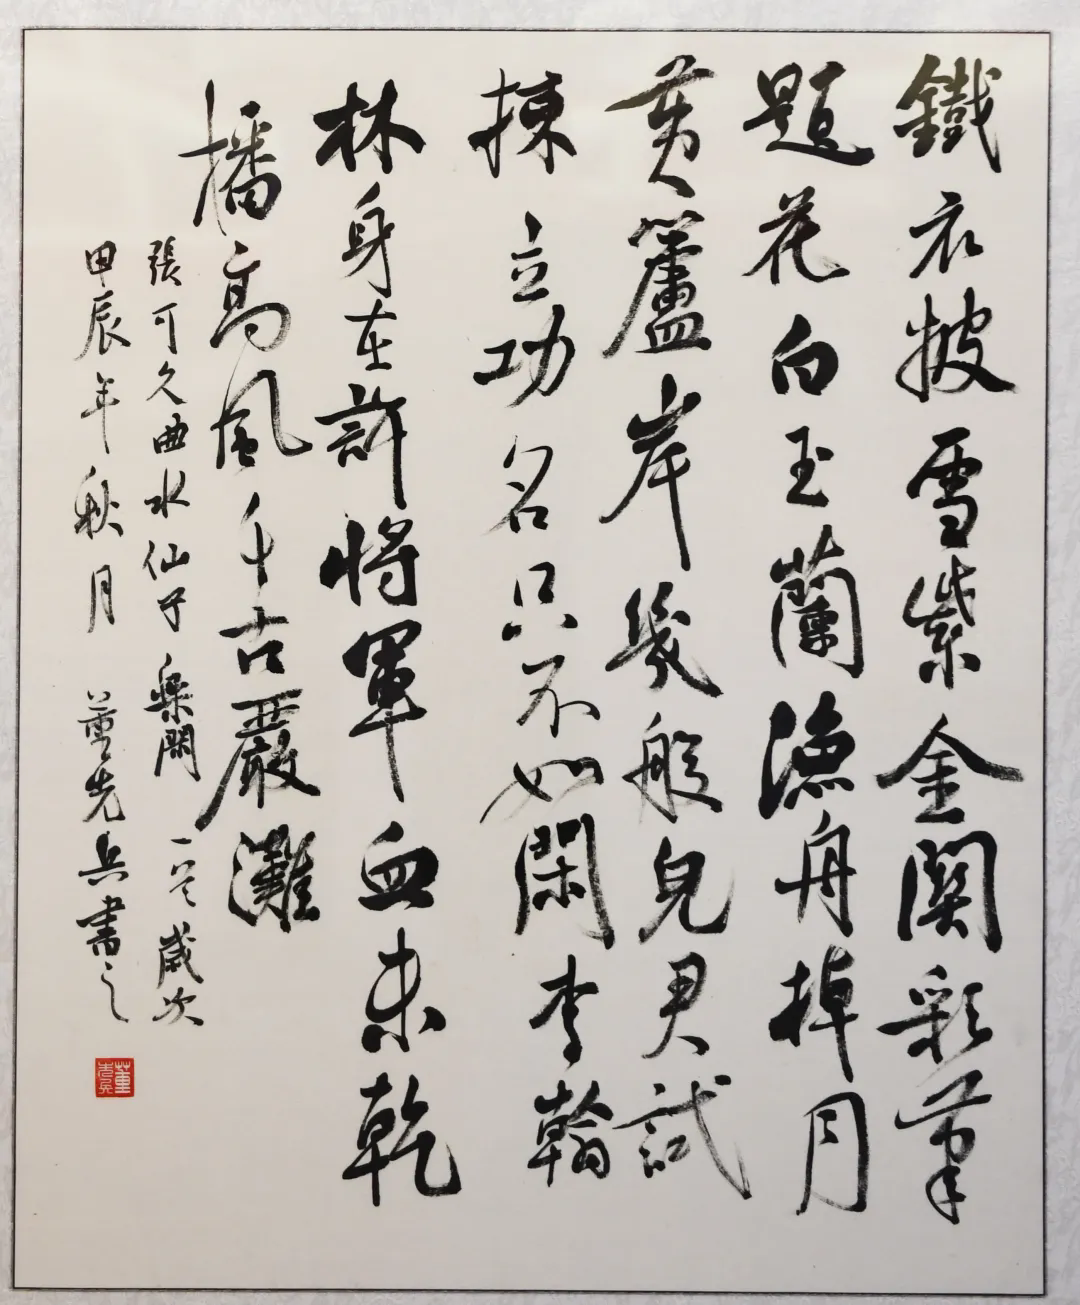 鐵衣披雪紫金關彩筆
題花白玉蘭漁舟掉月
黃蘆岸幾般兒君試
揀立功名只不如閑李翰
林身在許將軍血未乾
播高風千古嚴灘
張可久曲水仙子樂閑一首歲次
甲辰年秋月董先兵書之